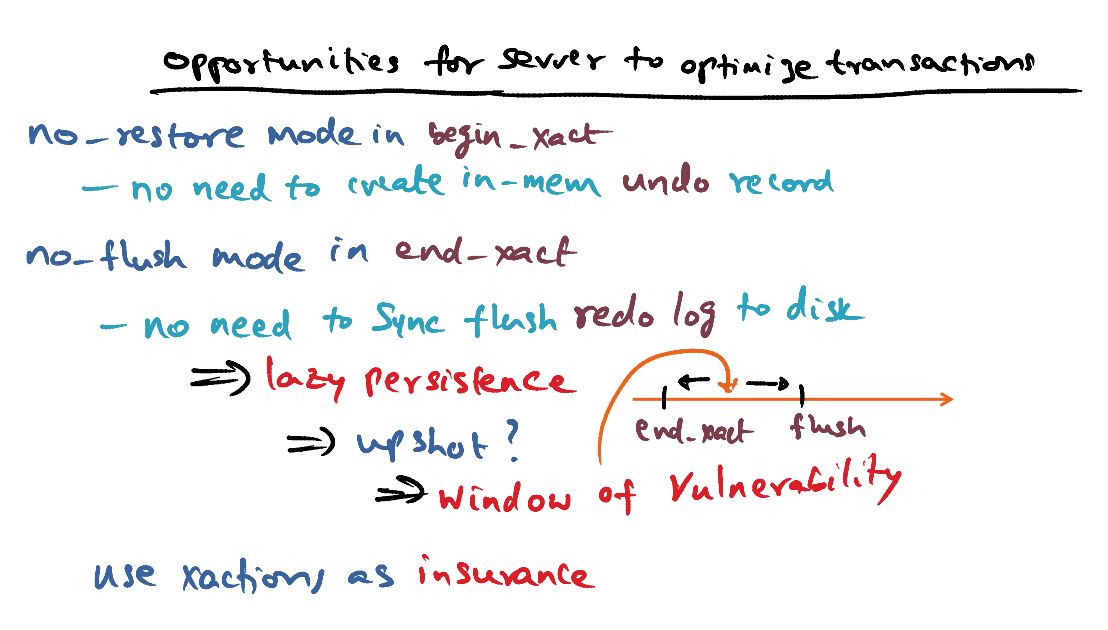 opportunities for server to optimize transactions
no_restore mode in begin_xact
- no need to create in-mem undo record
no_flush mode in end_xact
- no need to sync flush redo log to disk
⇒ lazy persistence
end_xact flush
⇒ upshot?
⇒ window of vulnerability
use xactions as insurance